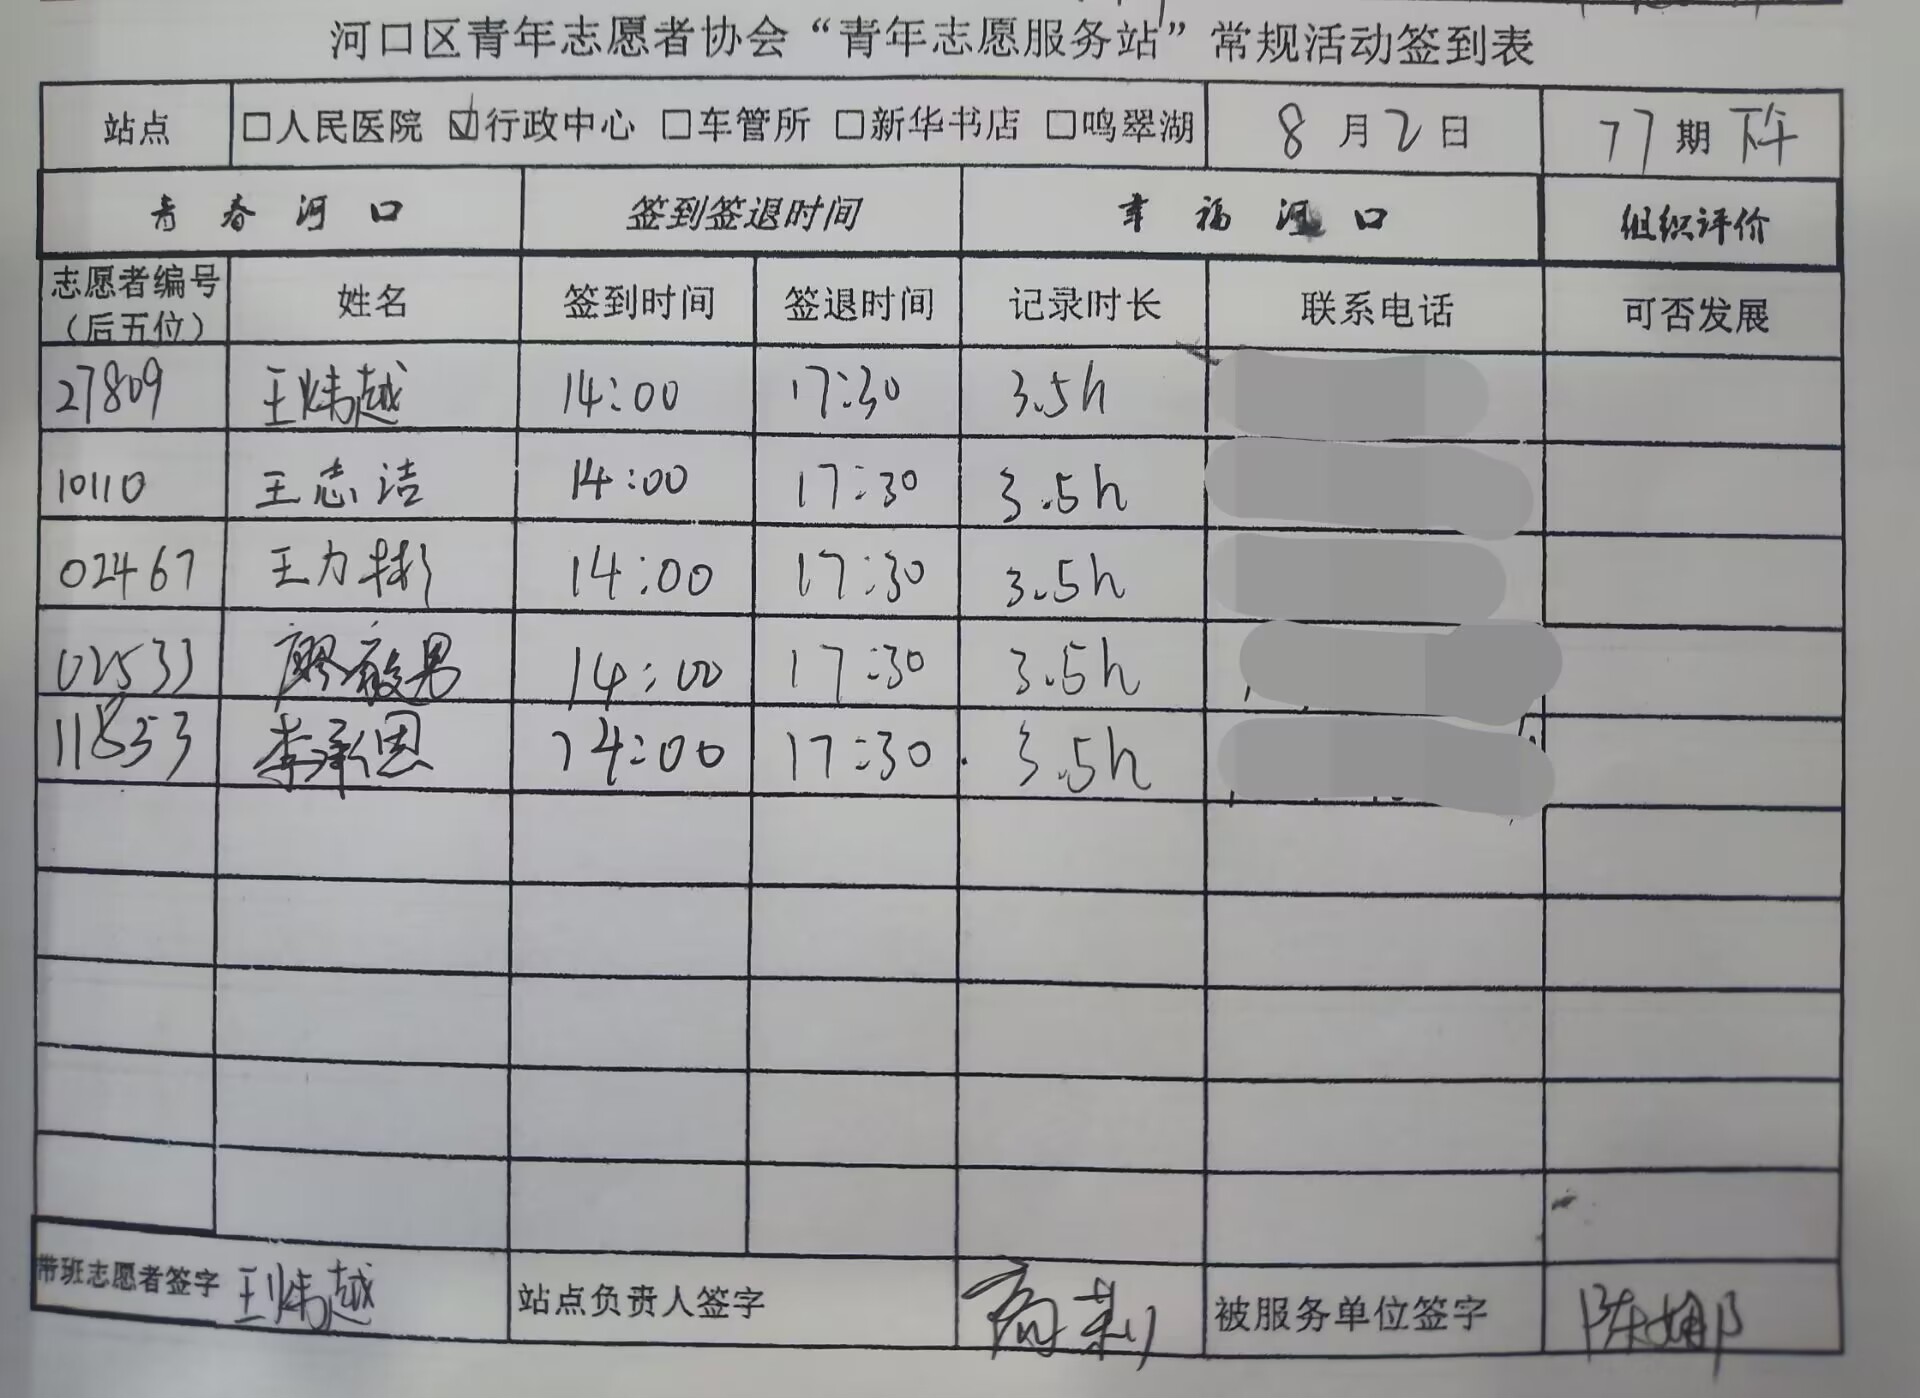 河口区青年志愿者协会“青年志愿服务站”常规活动签到表
站点 □人民医院 ☑行政中心 □车管所 □新华书店 □鸣翠湖 8月2日 77期 下午
青春河口 签到签退时间 幸福河口 组织评价
志愿者编号（后五位） 姓名 签到时间 签退时间 记录时长 联系电话 可否发展
27809 王炜越 14:00 17:30 3.5h
10110 王志洁 14:00 17:30 3.5h
02467 王力彬 14:00 17:30 3.5h
02533 廖毅男 14:00 17:30 3.5h
11853 李承恩 14:00 17:30 3.5h
带班志愿者签字 王炜越 站点负责人签字 被服务单位签字 陈娜